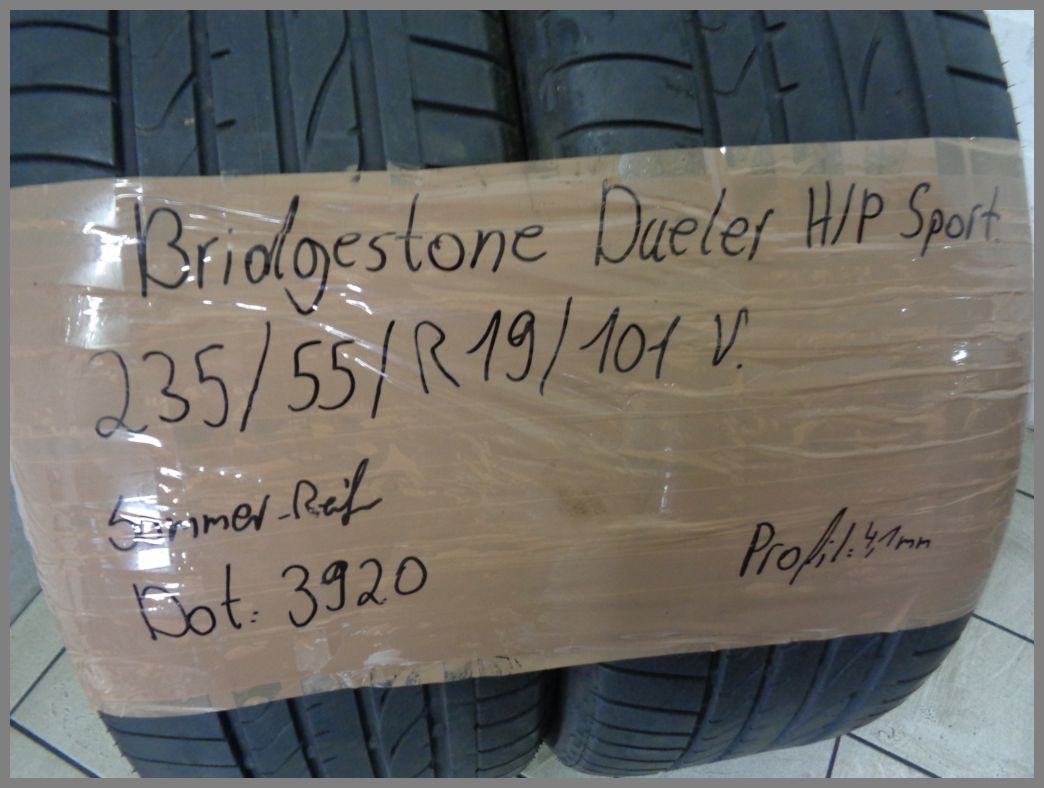 Bridgestone Dueler H/P Sport.
235/55/R19/101 V.
Sommer-Reif
Dot: 3920
Profil: 4,1mm